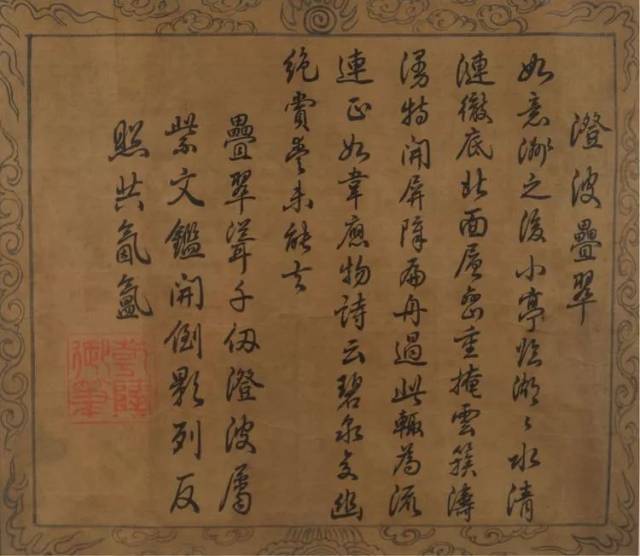 澄波疊翠
如意洲之後小亭臨湖〻水清
漣徹底北面層巒重掩雲簇濤
湧特開屏障扁舟過此輒為流
連正如韋應物詩云碧泉交幽
絕賞愛未能去
疊翠聳千仞澄波屬
紫文鑑開倒影列反
照共氤氳
乾隆
御筆